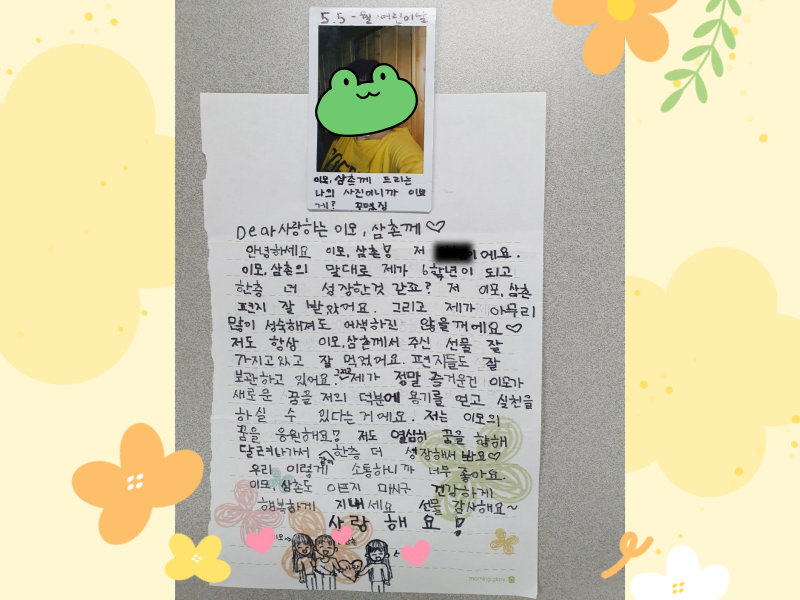 5.5 - 월 어린이날
이모, 삼촌께 드리는
나의 사진이니까 이쁘
게?
Dear 사랑하는 이모, 삼촌께♡
안녕하세요 이모, 삼촌! 저 이에요.
이모, 삼촌의 말대로 제가 6학년이 되고
한층 더 성장한것 같죠? 저 이모, 삼촌
편지 잘 받았어요. 그리고 제가 아무리
많이 성숙해져도 어색하진 않을꺼에요♡
저도 항상 이모, 삼촌께서 주신 선물 잘
가지고 있고 잘 먹겠어요. 편지들도 잘
보관하고 있어요. 그리고 제가 정말 즐거운건 이모가
새로운 꿈을 저의 덕분에 용기를 얻고 실천을
하실 수 있다는 거에요. 저는 이모의
꿈을 응원해요! 저도 열심히 꿈을 향해
달려나가서 한층 더 성장해서 봐요♡
우리 이렇게 소통하니까 너무 좋아요.
이모, 삼촌도 아프지 마시구 건강하게
행복하게 지내세요 선물 감사해요~
사랑해요!
이모→
morning glory